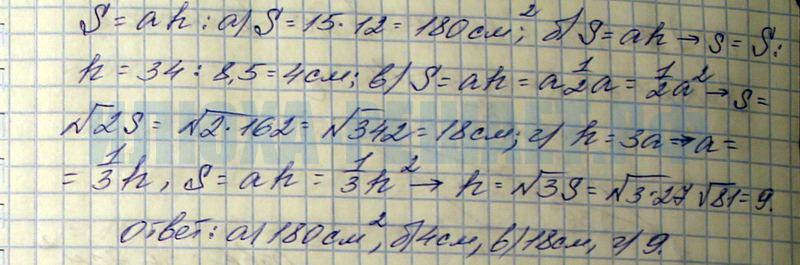 S = ah : а) S = 15·12 = 180см²; б) S = ah → s = S:
h = 34 : 8,5 = 4см; в) S = ah = a½a = ½a² → s =
√2S = √2·162 = √342 = 18см; г) h = 3a → a =
= ⅓h, S = ah = ⅓h² → h = √3S = √3·27 √81 = 9.
Ответ: а) 180см², б) 4см, в) 18см, г) 9.